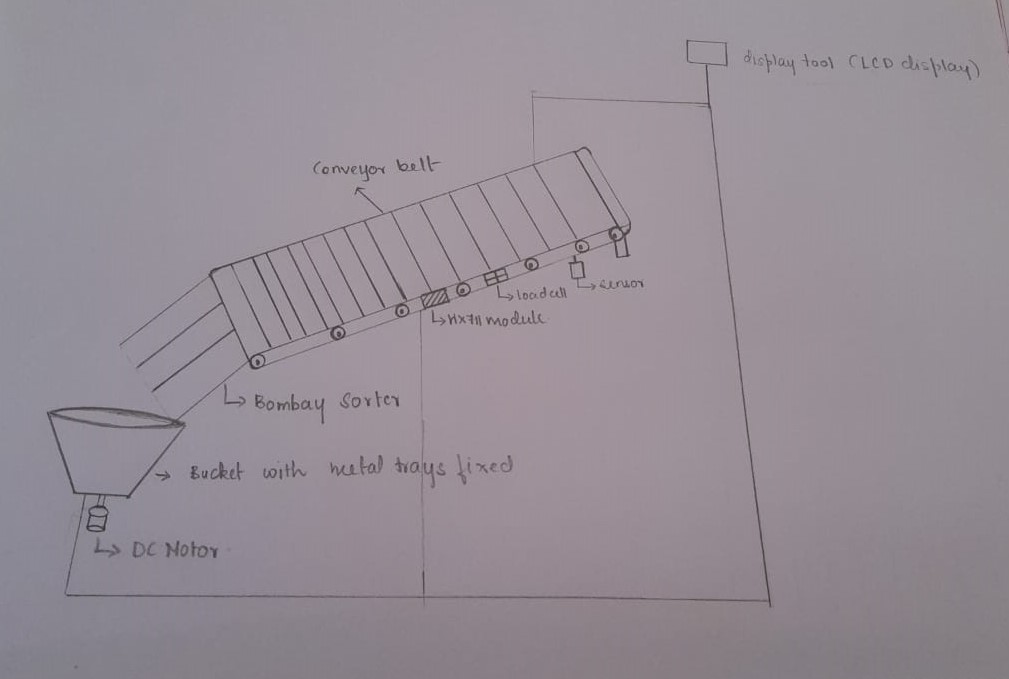 display tool (LCD display)
Conveyor belt
sensor
loadcell
HX711 module
Bombay Sorter
Bucket with metal trays fixed
DC Motor